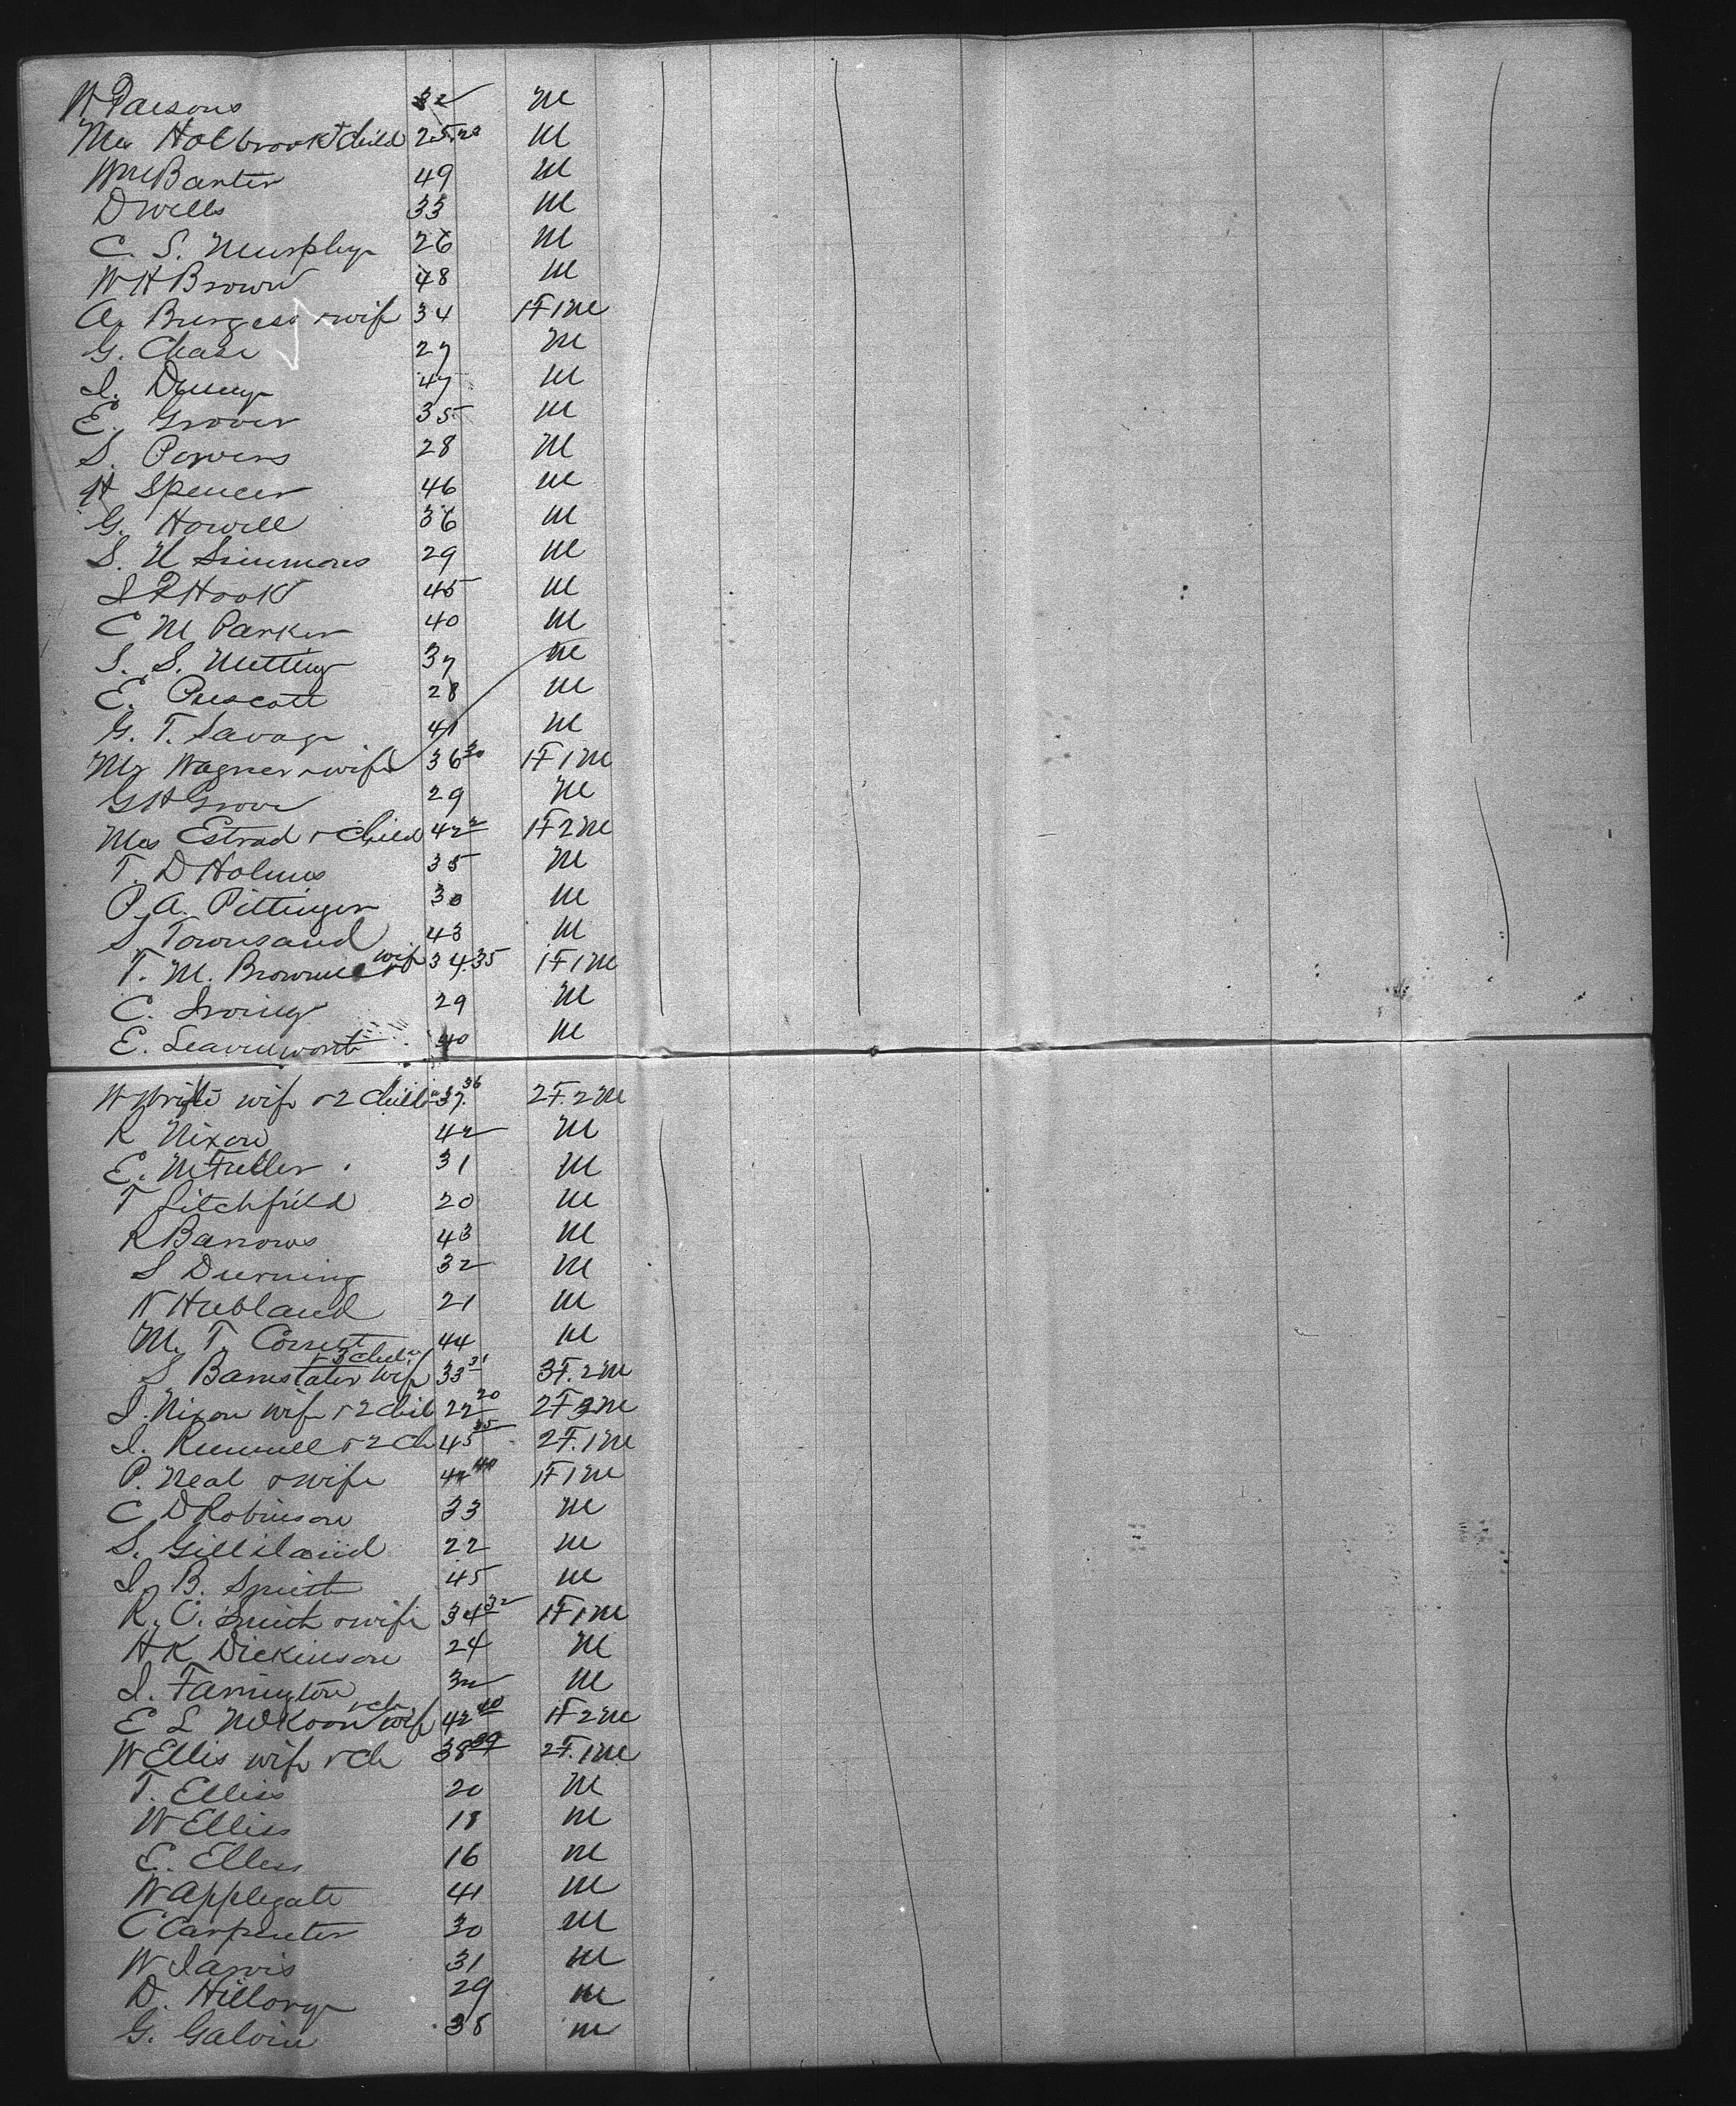 W Parsons 32 M
Mrs Holbrook + child 25. M
Wm Baxter 49 M
D Wells 33 M
C. S. Murphy 26 M
W H Brown 48 M
A. Burgess + wife 34 1F 1M
G. Chase 27 M
J. Denny 47 M
E. Grover 35 M
S. Powers 28 M
H Spencer 46 M
G. Howell 36 M
S. H Simmons 29 M
S P Hook 45 M
C M Parker 40 M
S. S. Nutting 37 M
E. Prescott 28 M
G. T. Savage 41 M
Mr Wagner + wife 36 30 1F 1M
G H Grove 29 M
Mrs Estrad + Child 42 2 1F 2M
T. D Holmes 35 M
P. A. Pittinger 30 M
S Townsand 43 M
T. M. Browne + wife 34.35 1F 1M
C. Irving 29 M
E. Leavenworth 40 M
W White wife + 2 child 37. 36 2F. 2M
R Nixon 42 M
E. M Fuller 31 M
T Litchfield 20 M
R Barrows 43 M
S Durning 32 M
N Hubland 21 M
M. T. 44 M
S Barnstater wife + 3 chil 33 31 3F. 2M
J. Nixon wife + 2 chil 22 20 2F 2M
J. Rummell + 2 ch 45 35 2F. 1M
P. Neal + wife 42 40 1F 1M
C D Robinson 33 M
S. Gilliland 22 M
J. B. Smith 45 M
R. C. Smith + wife 34 32 1F 1M
H K Dickinson 24 M
J. Farrington 32 M
E L McKoon wife + ch 42 40 1F 2M
W Ellis wife + ch 38 39 2F. 1M
T. Ellis 20 M
W Ellis 18 M
E. Ellis 16 M
W Applegate 41 M
C Carpenter 30 M
W Jarvis 31 M
D. Hillary 29 M
G. Galvin 38 M